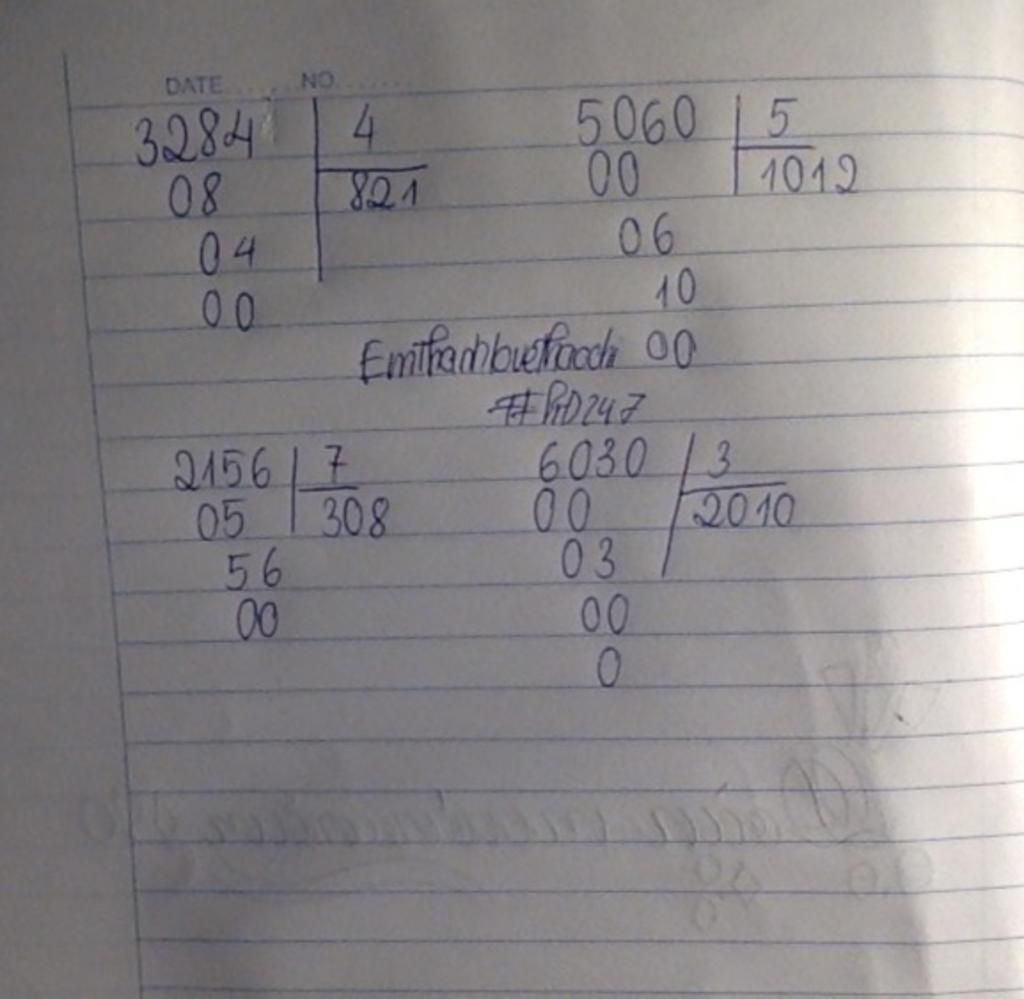 DATE NO
3284 4
08 821
04
00
5060 5
00 1012
06
10
00
2156 7
05 308
56
00
6030 3
00 2010
03
00
0